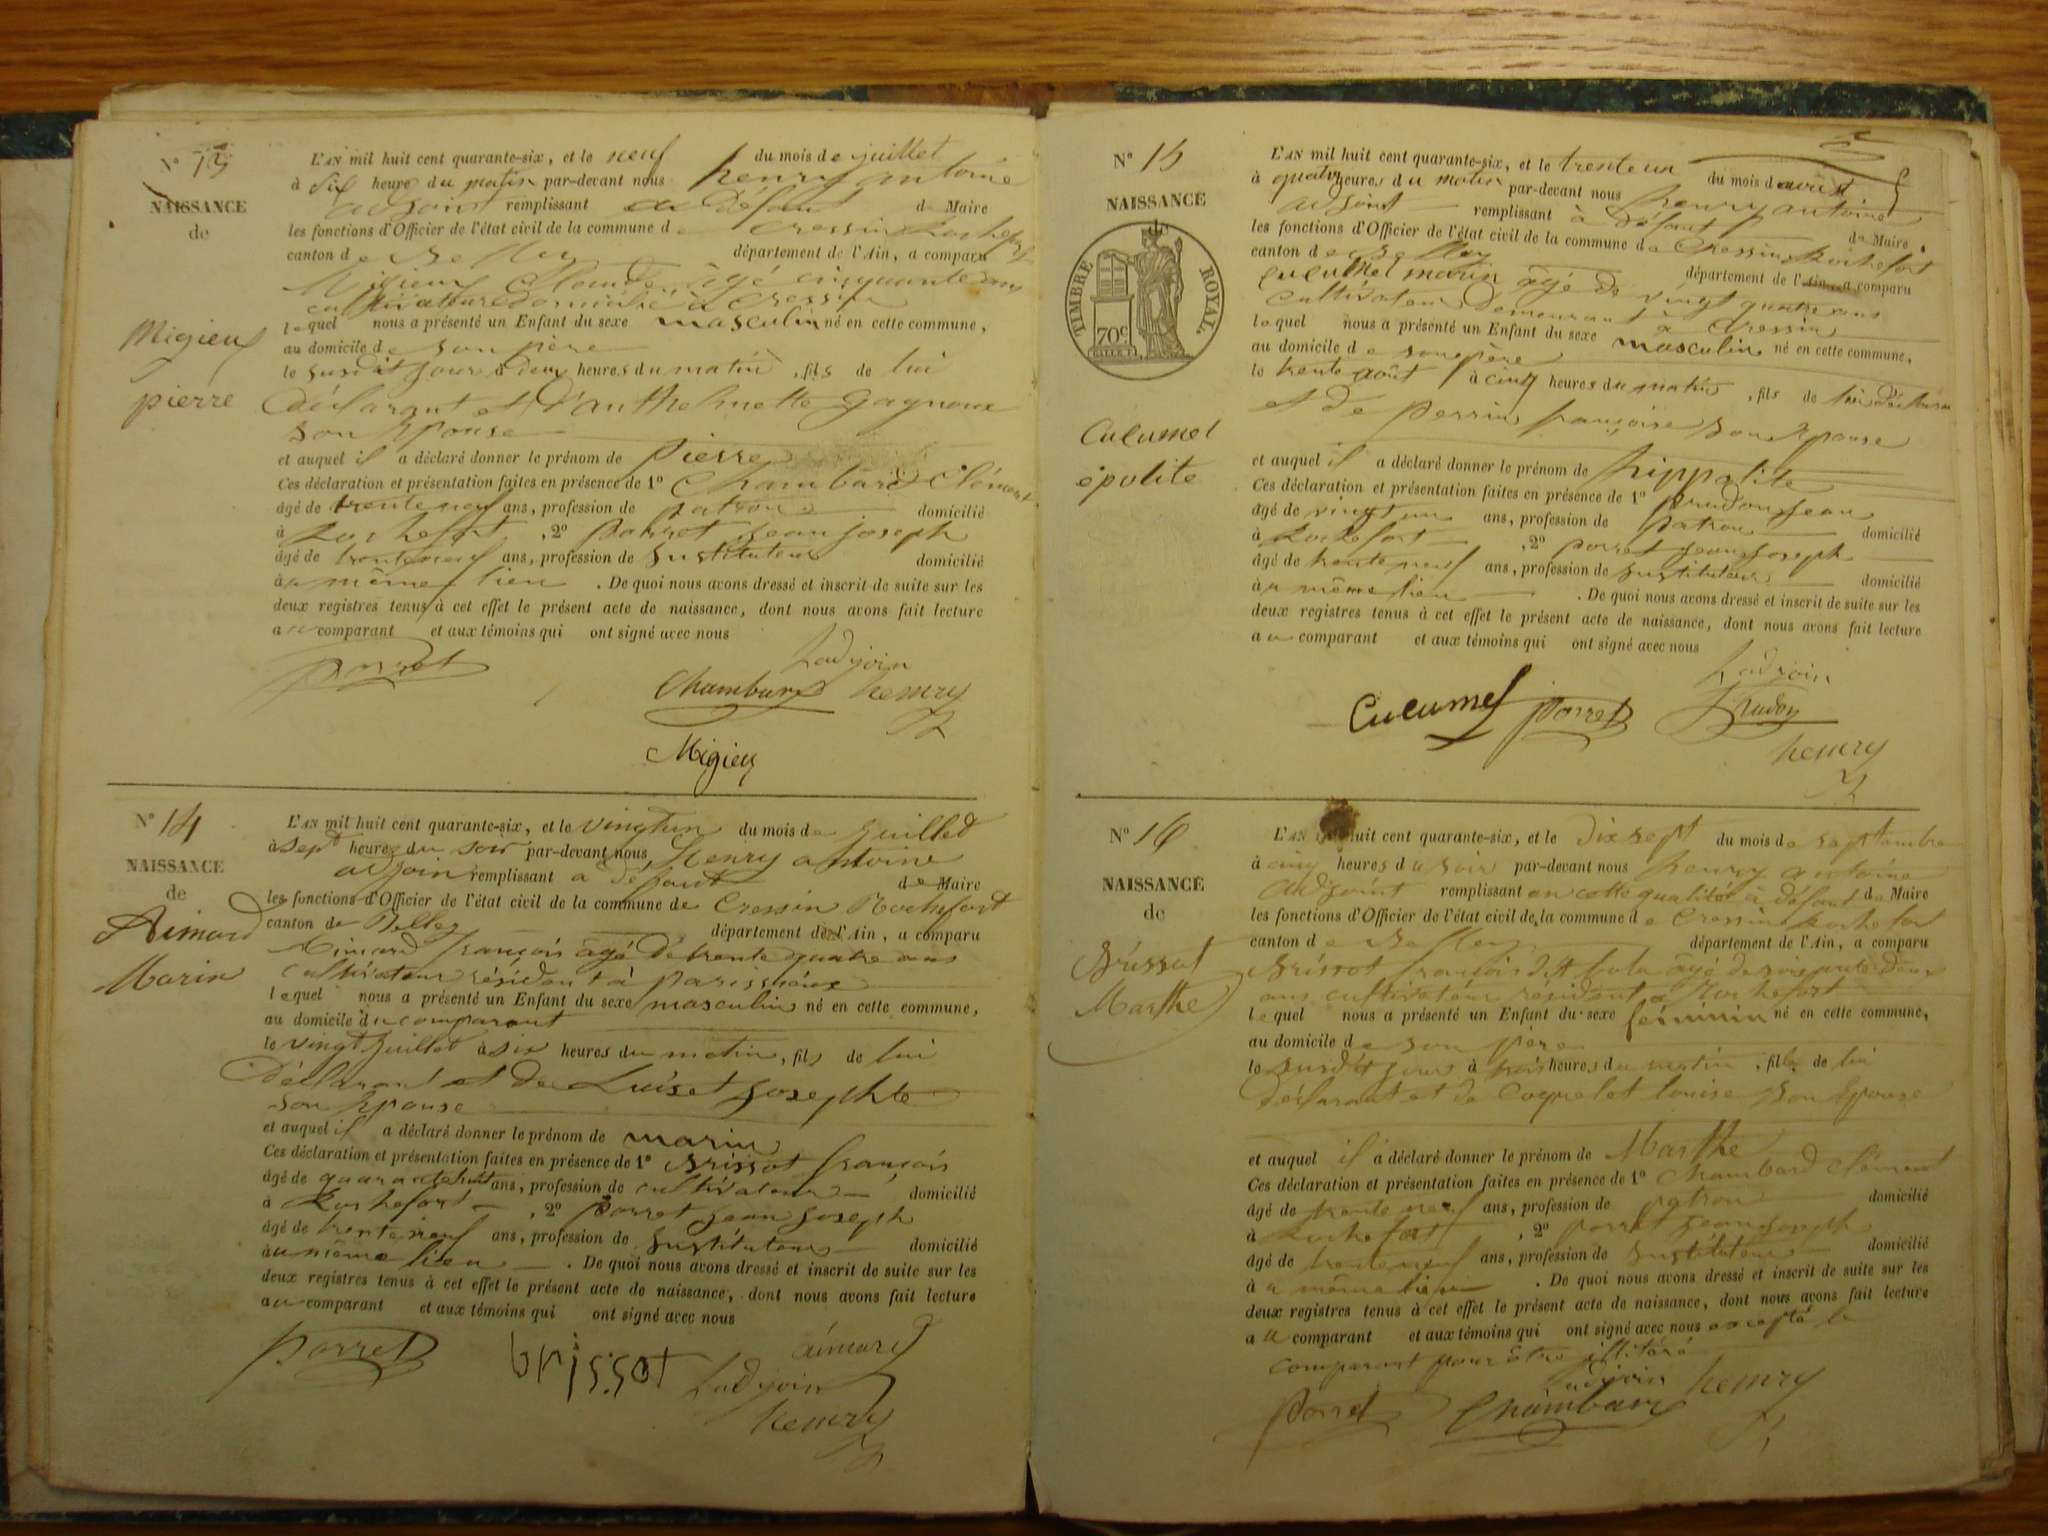 N° 13
NAISSANCE
de
Migieux
pierre
L'AN mil huit cent quarante-six, et le neuf du mois de juillet
à six heure du matin par-devant nous henry antoine
adjoint remplissant à défaut de Maire
les fonctions d'Officier de l'état civil de la commune de Cressin Rochefort
canton de Belley département de l'Ain, a comparu
Migieux Claude, âgé cinquante ans
cultivateur domicilié à Cressin
lequel nous a présenté un Enfant du sexe masculin né en cette commune,
au domicile de son père
le susdit jour à deux heures du matin, fils de lui
déclarant et d'anthelmette gagnoux
son Epouse
et auquel il a déclaré donner le prénom de pierre
Ces déclaration et présentation faites en présence de 1° Chambard Clément
âgé de trente neuf ans, profession de patron domicilié
à Rochefort, 2° porret jean joseph
âgé de trente neuf ans, profession de Instituteur domicilié
à u même lieu. De quoi nous avons dressé et inscrit de suite sur les
deux registres tenus à cet effet le présent acte de naissance, dont nous avons fait lecture
au comparant et aux témoins qui ont signé avec nous
porret
L'adjoin
Chambard henry
Migieux
N° 14
NAISSANCE
de
Aimard
Marin
L'AN mil huit cent quarante-six, et le vingtun du mois de Juillet
à sept heures du soir par-devant nous Henry antoine
adjoin remplissant a défaut de Maire
les fonctions d'Officier de l'état civil de la commune de Cressin Rochefort
canton de Belley département de l'Ain, a comparu
Aimard françois âgé de trente quatre ans
cultivateur résidant à parissieux
lequel nous a présenté un Enfant du sexe masculin né en cette commune,
au domicile du comparant
le vingt Juillet à six heures du matin, fils de lui
Déclarant et de Luiset Josephte
son Epouse
et auquel il a déclaré donner le prénom de marin
Ces déclaration et présentation faites en présence de 1° Brissot françois
âgé de quarantehuit ans, profession de cultivateur domicilié
à Rochefort, 2° porret jean joseph
âgé de trente neuf ans, profession de Instituteur domicilié
àu même lieu. De quoi nous avons dressé et inscrit de suite sur les
deux registres tenus à cet effet le présent acte de naissance, dont nous avons fait lecture
au comparant et aux témoins qui ont signé avec nous
porret brissot aimard
L'adjoin
henry
N° 15
NAISSANCE
TIMBRE ROYAL.
70c
Cucumel
épolite
L'AN mil huit cent quarante-six, et le trente un du mois d'aoust
à quatre heures du matin par-devant nous henry antoine
adjoint remplissant à défaut de Maire
les fonctions d'Officier de l'état civil de la commune de Cressin Rochefort
canton de Belley département de l'Ain, a comparu
Cucumel marin âgé de vingt quatre ans
cultivateur demeurant à Cressin
lequel nous a présenté un Enfant du sexe masculin né en cette commune,
au domicile de son père
le trente août à cinq heures du matin, fils de lui déclarant
et de perrin françoise son Epouse
et auquel il a déclaré donner le prénom de hippolite
Ces déclaration et présentation faites en présence de 1° prudon jean
âgé de vingt un ans, profession de patron domicilié
à Rochefort, 2° porret jean joseph
âgé de trente neuf ans, profession de Instituteur domicilié
à u même lieu. De quoi nous avons dressé et inscrit de suite sur les
deux registres tenus à cet effet le présent acte de naissance, dont nous avons fait lecture
au comparant et aux témoins qui ont signé avec nous
L'adjoin
Cucumel porret Prudon
henry
N° 16
NAISSANCE
de
Brissot
Marthe
L'AN huit cent quarante-six, et le dix sept du mois de septembre
à cinq heures du soir par-devant nous henry antoine
adjoint remplissant en cette qualité à défaut de Maire
les fonctions d'Officier de l'état civil de la commune de Cressin Rochefort
canton de Belley département de l'Ain, a comparu
Brissot françois dit âgé de soixante deux
ans cultivateur résident à Rochefort
lequel nous a présenté un Enfant du sexe féminin né en cette commune,
au domicile de son père
le susdit jour à trois heures du matin, fille de lui
déclarant et de Coquelet louise son Epouse
et auquel il a déclaré donner le prénom de Marthe
Ces déclaration et présentation faites en présence de 1° Chambard Clément
âgé de trente neuf ans, profession de patron domicilié
à Rochefort, 2° porret jean joseph
âgé de trente neuf ans, profession de Instituteur domicilié
à u même lieu. De quoi nous avons dressé et inscrit de suite sur les
deux registres tenus à cet effet le présent acte de naissance, dont nous avons fait lecture
au comparant et aux témoins qui ont signé avec nous excepté le
comparant pour être illitéré
L'adjoin henry
Porret Chambard